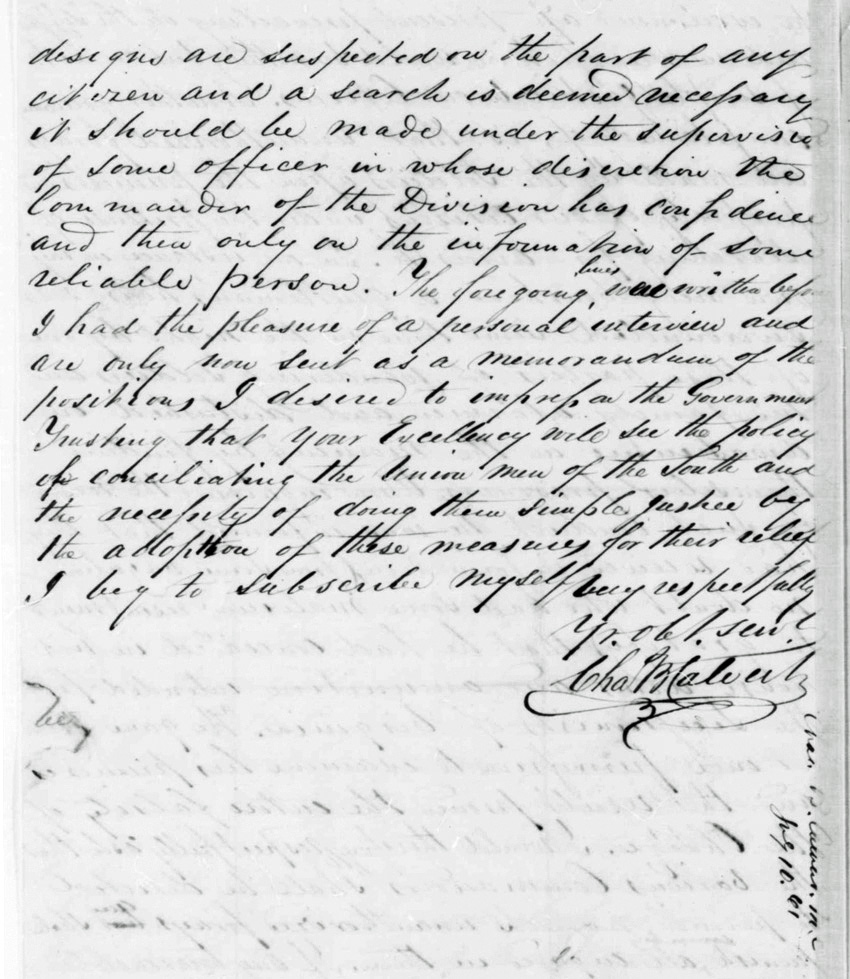 designs are suspected on the part of any
citizen and a search is deemed necessary
it should be made under the supervision
of some officer in whose discretion the
Commander of the Division has confidence
and then only on the information of some
reliable person. The foregoing lines was written before
I had the pleasure of a personal interview and
are only now sent as a memorandum of the
positions I desired to impress on the Government
Trusting that Your Excellency will see the policy
of conciliating the Union men of the South and
the necessity of doing them simple justice by
the adoption of these measures for their relief
I beg to subscribe myself very respectfully
Yr. Obt. servt.
Chas B Calvert
Chas. B. Calvert
10. 61